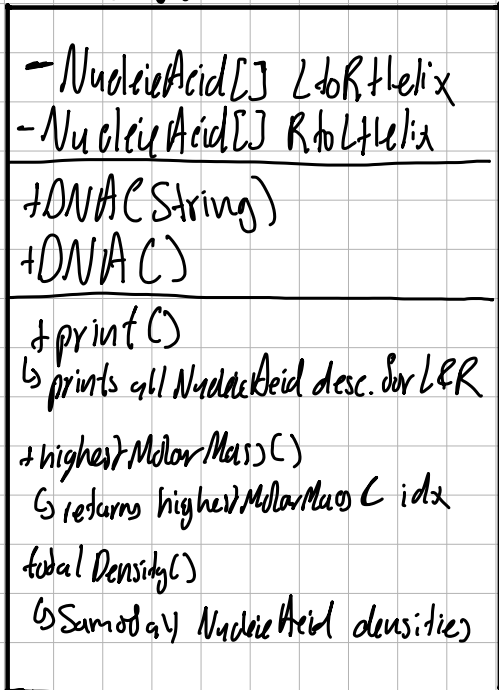 - NucleicAcid[] LtoRHelix
- NucleicAcid[] RtoLHelix
+DNA(String)
+DNA()
+print()
↳ prints all NucleicAcid desc. for L&R
+highestMolarMass()
↳ returns highestMolarMass C idx
totalDensity()
↳ Sum of all NucleicAcid densities